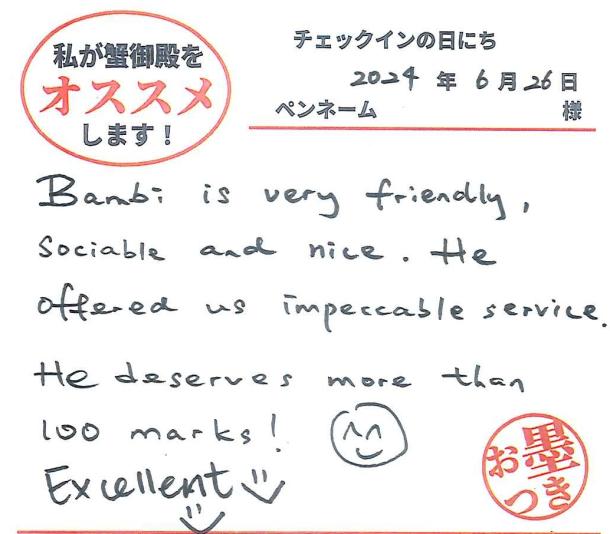 私が蟹御殿を
オススメ
します!
チェックインの日にち
2024 年 6 月 26 日
ペンネーム 様
Bambi is very friendly,
Sociable and nice. He
offered us impeccable service.
He deserves more than
100 marks!
Excellent
お墨
つき